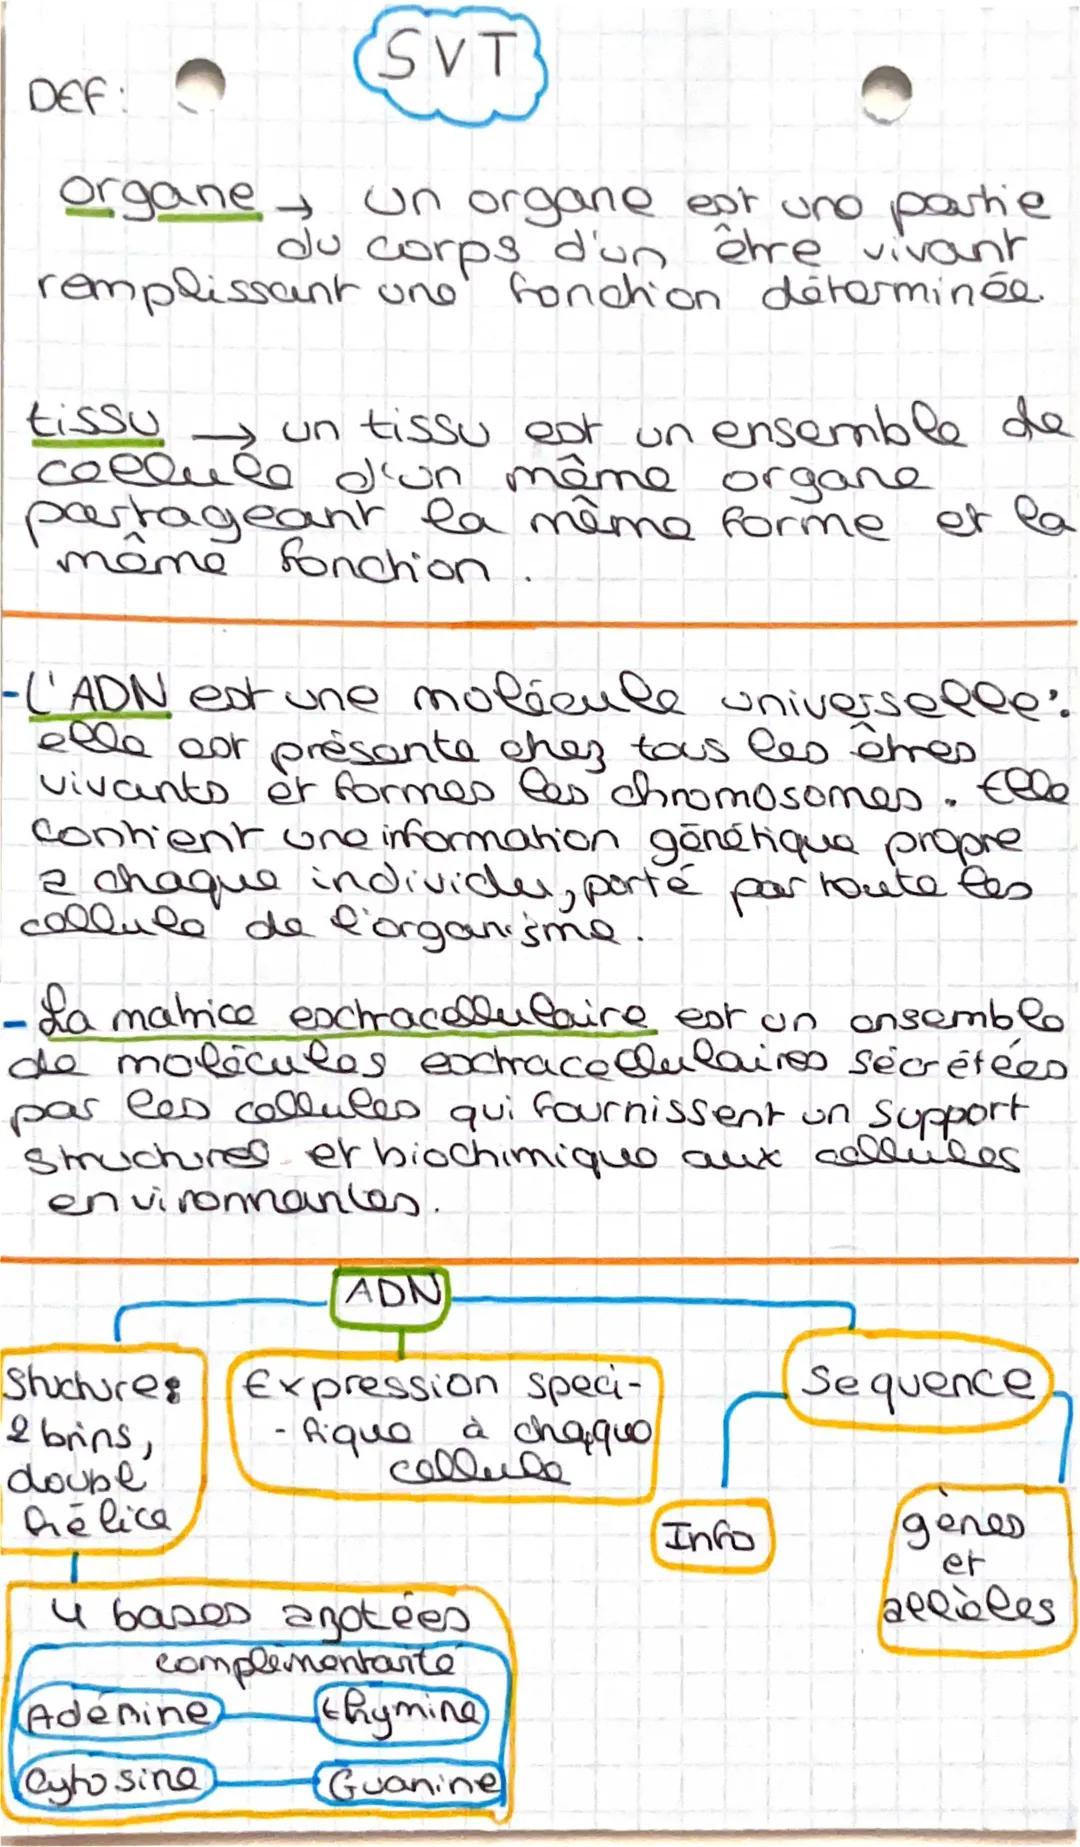 SVT
DEF:
organe → un organe est une partie
du corps d'un être vivant
remplissant une fonction déterminée.
tissu → un tissu est un ensemble de
cellule d'un même organe
partageant la même forme et la
même fonction.
-L'ADN est une molécule universelle:
elle est présente chez tous les êtres
vivants et formes les chromosomes. Elle
contient une information génétique propre
a chaque individu, porté par toute les
cellule de l'organisme.
- La matrice exctracellulaire est un ensemble
de molécules exctracellulaires sécrétées
par les cellules qui fournissent un support
structures et biochimique aux cellules
environnantes.
ADN
Structure:
2 brins,
double
hélice
Expression speci-
-fique à chaque
cellule
Sequence
Info
gènes
et
allèles
4 bases azotées
complémentarité
Adénine thymine
Cytosine Guanine